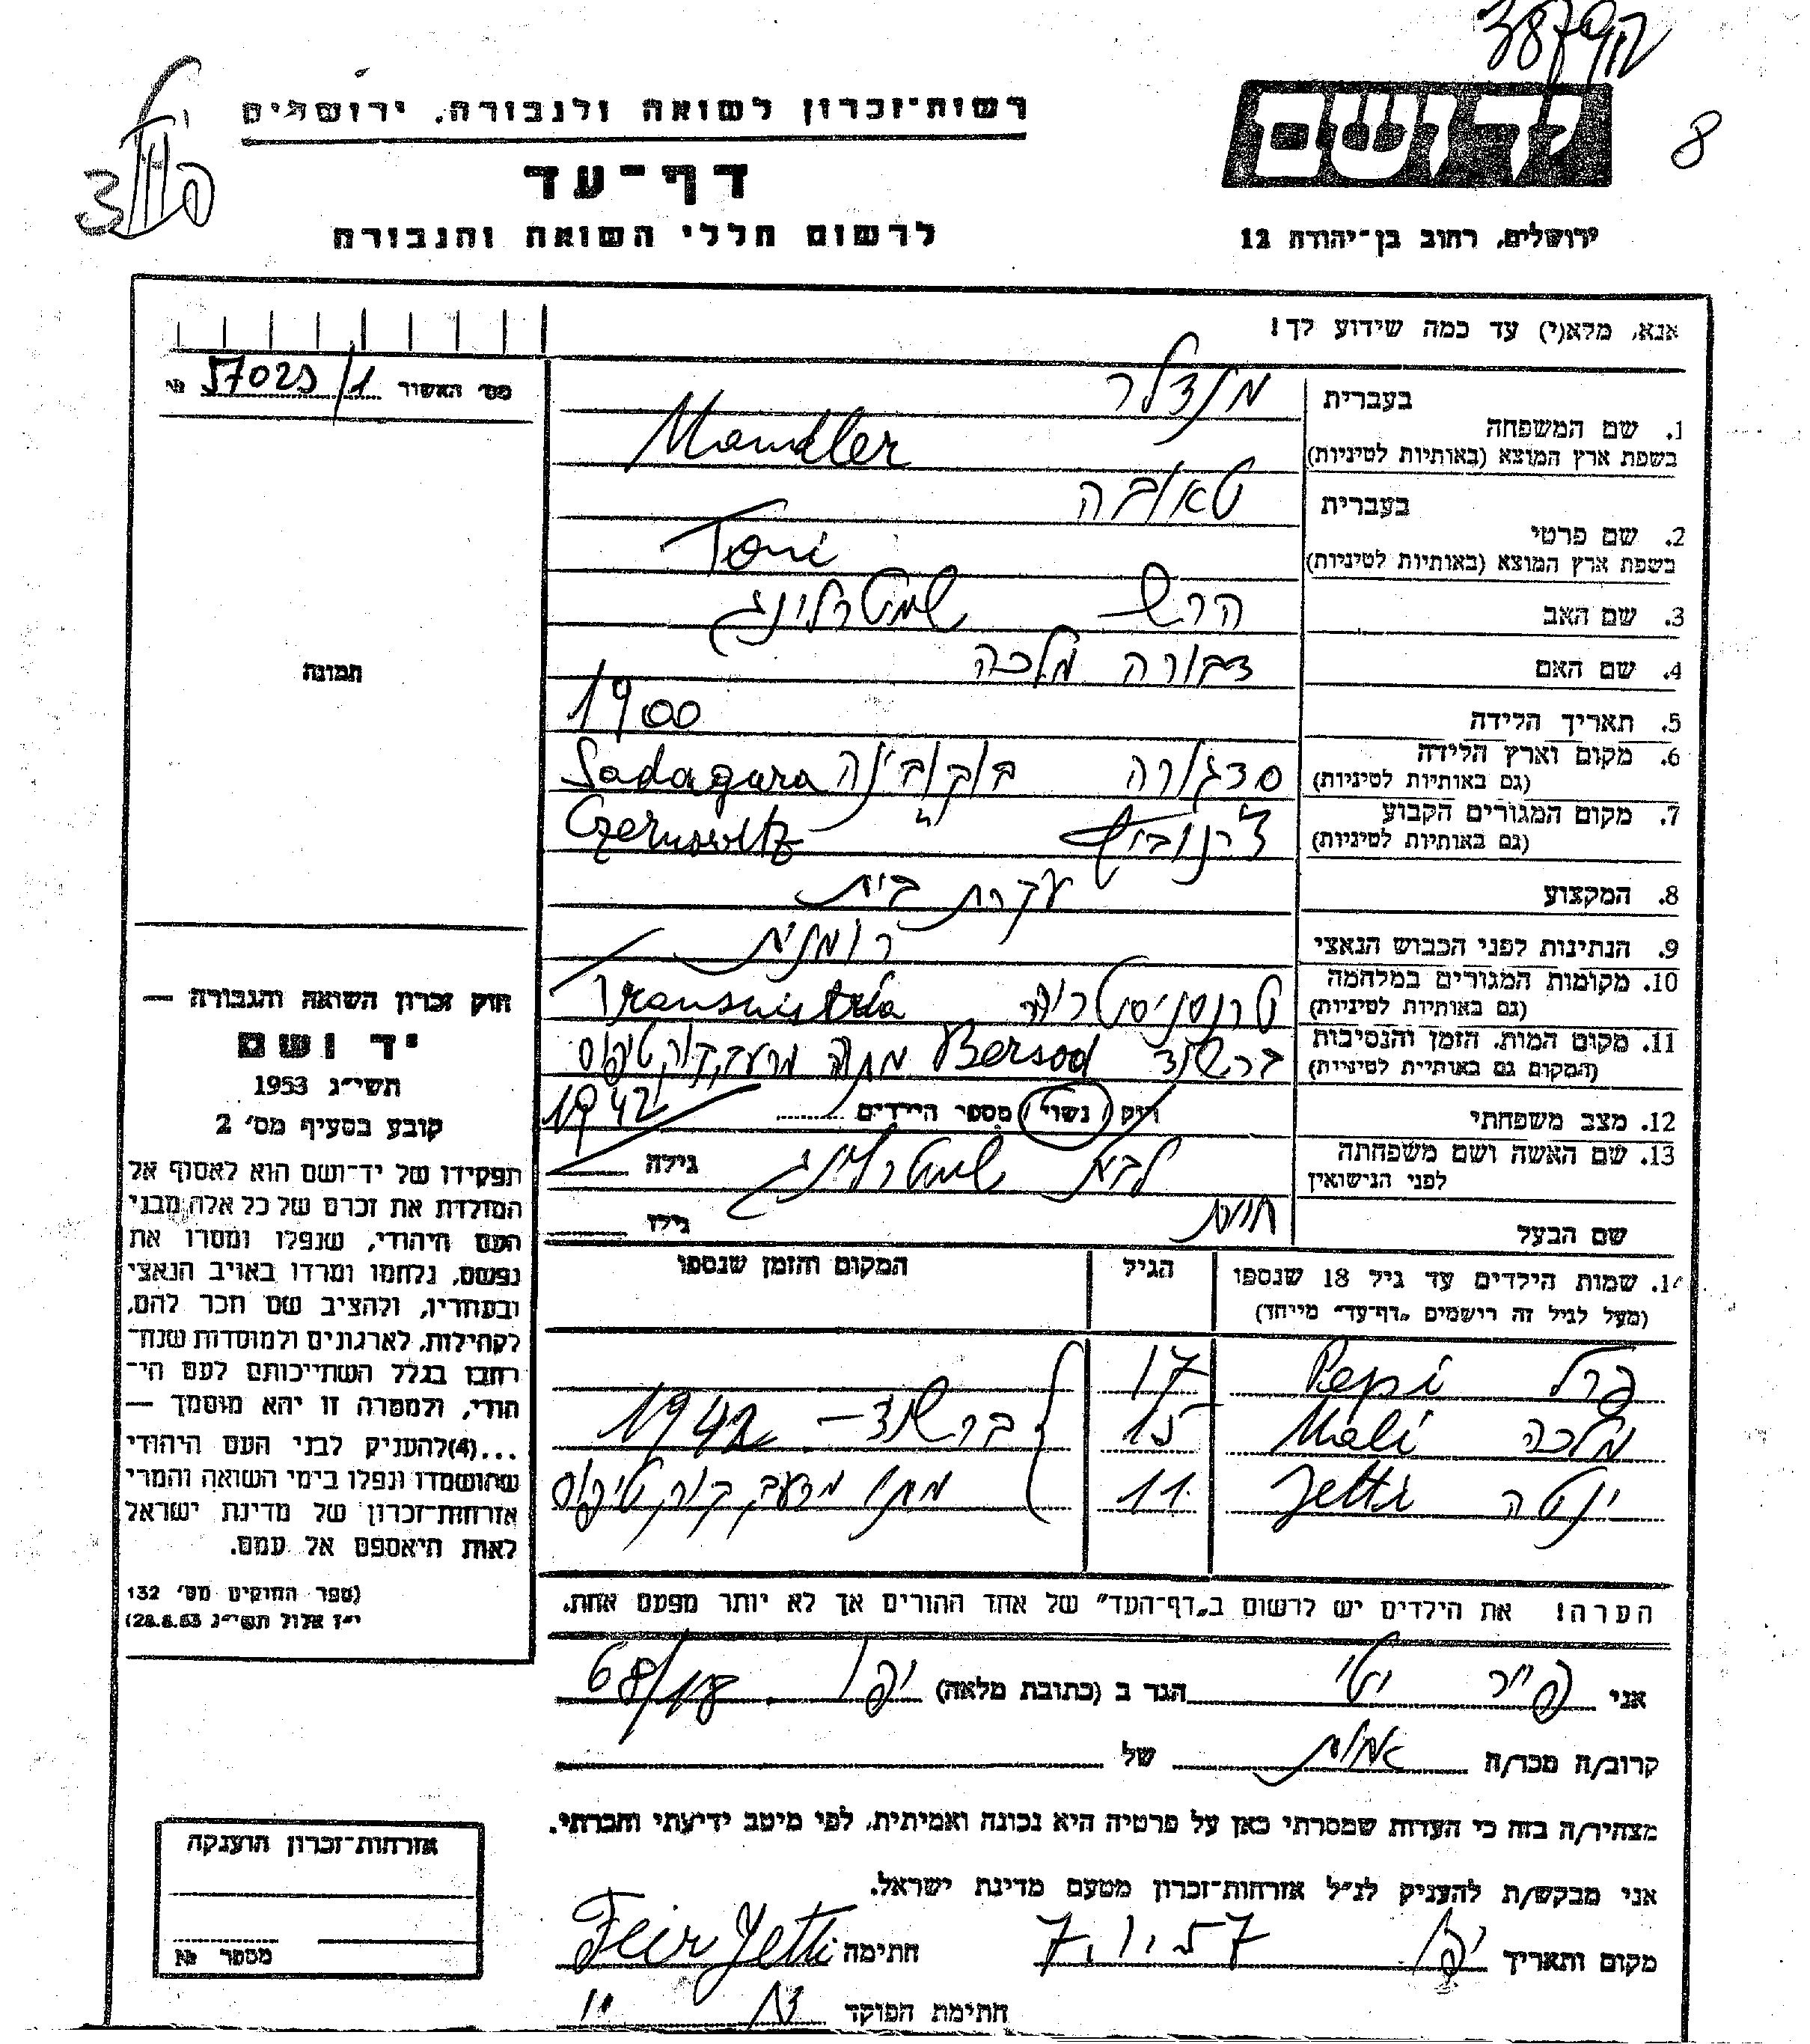 38792
8
יד ושם
ירושלים, רחוב בן-יהודה 12
רשות-זכרון לשואה ולגבורה, ירושלים
דף-עד
לרשום חללי השואה והגבורה
אנא, מלא(י) עד כמה שידוע לך!
מס׳ האשור 57023/1 №
בעברית מנדלר
1. שם המשפחה
בשפת ארץ המוצא (באותיות לטיניות) Mandler
בעברית טאובה
2. שם פרטי
בשפת ארץ המוצא (באותיות לטיניות) Toni
3. שם האב הרש שמטרלינג
4. שם האם דבורה מלכה
5. תאריך הלידה 1900
6. מקום וארץ הלידה
(גם באותיות לטיניות) סדגורה בוקובינה Sadagura
7. מקום המגורים הקבוע
(גם באותיות לטיניות) צ׳רנוביץ Czernowitz
8. המקצוע עקרת בית
9. הנתינות לפני הכבוש הנאצי רומנית
10. מקומות המגורים במלחמה
(גם באותיות לטיניות) טרנסניסטריה Transnistria
11. מקום המות, הזמן והנסיבות
(המקום גם באותיות לטיניות) ברשד Bersad מתה מרעב קור טיפוס
1942
12. מצב משפחתי רוק / נשוי מספר הילדים
13. שם האשה ושם משפחתה
לפני הנישואין לבית שמטרלינג גילה
שם הבעל גילו
תמונה
חוק זכרון השואה והגבורה —
יד ושם
תשי״ג 1953
קובע בסעיף מס׳ 2
תפקידו של יד-ושם הוא לאסוף אל
המולדת את זכרם של כל אלה מבני
העם היהודי, שנפלו ומסרו את
נפשם, נלחמו ומרדו באויב הנאצי
ובעוזריו, ולהציב שם וזכר להם,
לקהילות, לארגונים ולמוסדות שנח־
רבו בגלל השתייכותם לעם הי־
הודי, ולמטרה זו יהא מוסמך —
...(4)להעניק לבני העם היהודי
שהושמדו ונפלו בימי השואה והמרי
אזרחות-זכרון של מדינת ישראל
לאות היאספם אל עמם.
(ספר החוקים מס׳ 132
י״ז אלול תשי״ג 28.8.53)
14. שמות הילדים עד גיל 18 שנספו הגיל המקום והזמן שנספו
(מעל לגיל זה רישמים „דף-עד״ מייחד)
פרל Pepi 17
מלכה Mali 15 ברשד – 1942
ינטה Jetti 11 מתו מרעב קור טיפוס
הערה! את הילדים יש לרשום ב„דף-העד״ של אחד ההורים אך לא יותר מפעם אחת.
אני פייר יטי הגר ב (כתובת מלאה) יפו 68/18
קרוב/ה מכר/ה אחות של
מצהיר/ה בזה כי העדות שמסרתי כאן על פרטיה היא נכונה ואמיתית, לפי מיטב ידיעתי והכרתי.
אני מבקש/ת להעניק לנ״ל אזרחות-זכרון מטעם מדינת ישראל.
מקום ותאריך יפו 7.1.57 חתימה Feir Jetti
חתימת הפוקד
אזרחות-זכרון הוענקה
מספר №